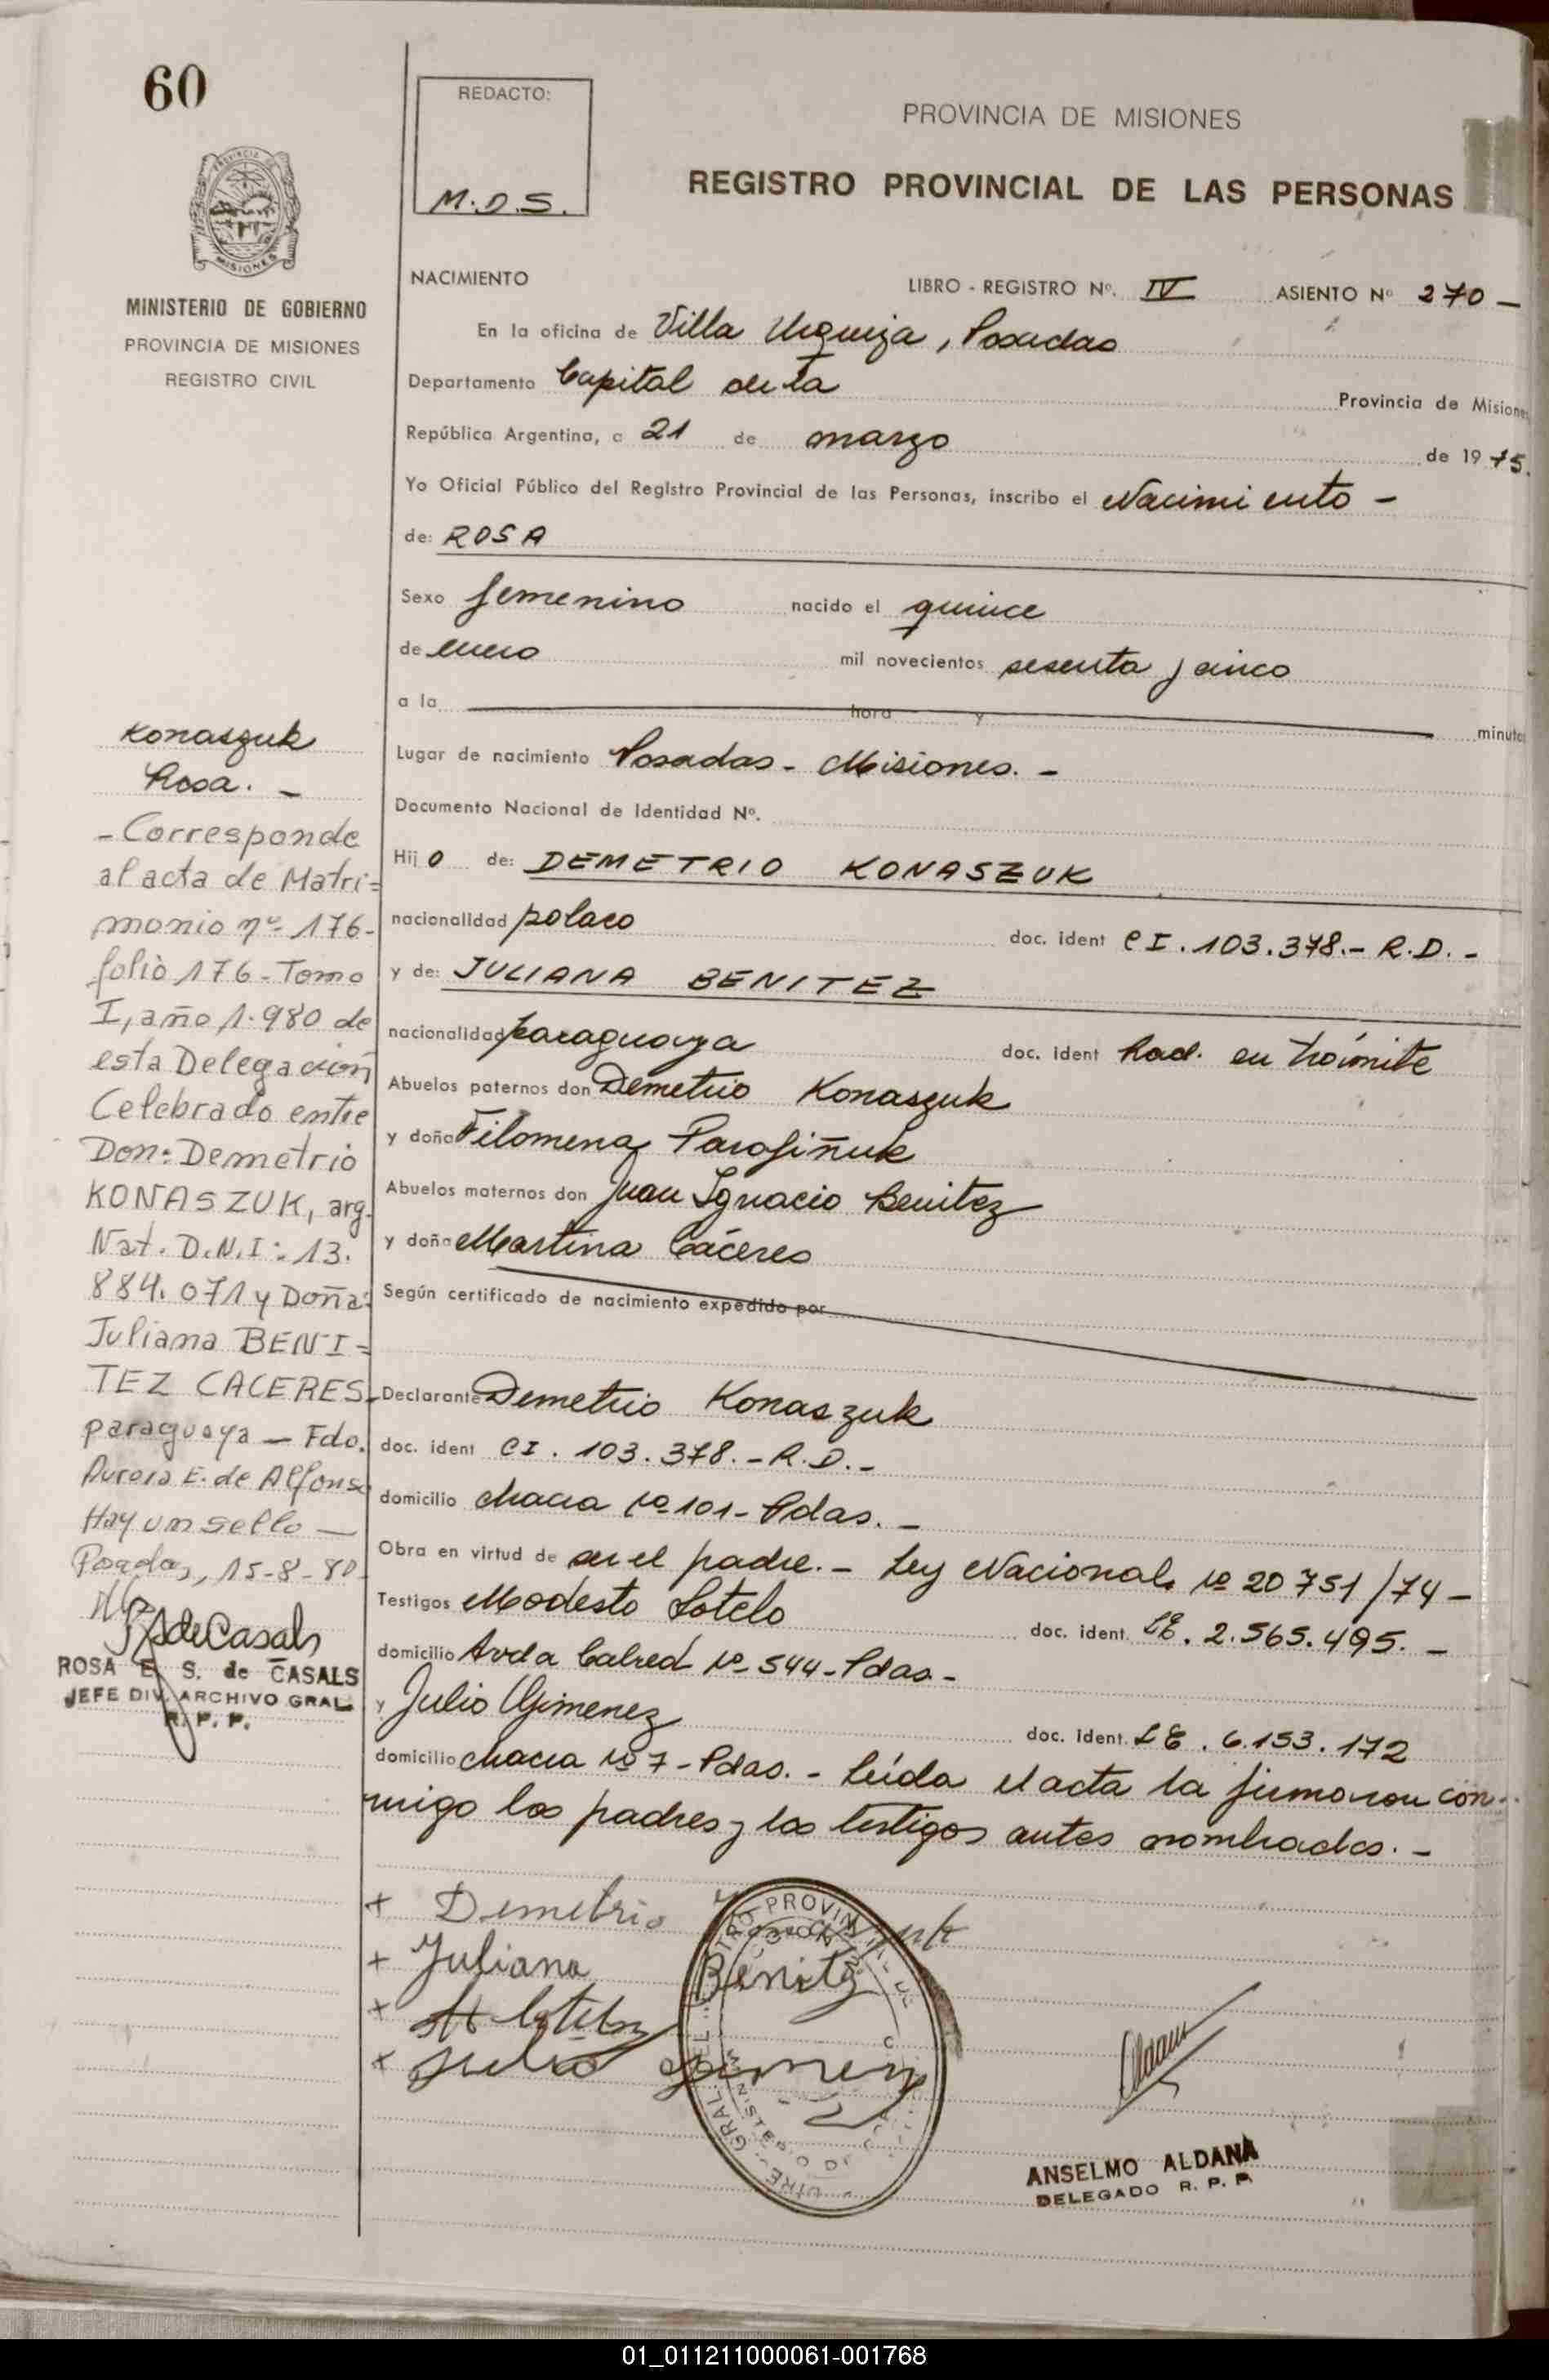 60
REDACTO:
M.D.S.
PROVINCIA DE MISIONES
REGISTRO PROVINCIAL DE LAS PERSONAS
PROVINCIA DE
MISIONES
MINISTERIO DE GOBIERNO
PROVINCIA DE MISIONES
REGISTRO CIVIL
NACIMIENTO LIBRO - REGISTRO Nº. IV ASIENTO Nº 270 —
En la oficina de Villa Urquiza, Posadas
Departamento Capital de la Provincia de Misiones
República Argentina, a 21 de marzo de 1975.
Yo Oficial Público del Registro Provincial de las Personas, inscribo el Nacimiento -
de: ROSA
Sexo femenino nacido el quince
de enero mil novecientos sesenta y cinco
a la hora y minutos
Lugar de nacimiento Posadas - Misiones. -
Documento Nacional de Identidad Nº.
Hijo de: DEMETRIO KONASZUK
nacionalidad polaco doc. ident CI. 103.378.- R.D. -
y de: JULIANA BENITEZ
nacionalidad paraguaya doc. ident Rad. en trámite
Abuelos paternos don Demetrio Konaszuk
y doña Filomena Parafiñuk
Abuelos maternos don Juan Ignacio Benitez
y doña Martina Cáceres
Según certificado de nacimiento expedido por
Declarante Demetrio Konaszuk
doc. ident CI. 103.378. - R.D. -
domicilio chacra Nº 101 - Pdas. -
Obra en virtud de ser el padre. - Ley Nacional Nº 20751/74 -
Testigos Modesto Sotelo doc. ident. LE. 2.565.495. -
domicilio Avda Nº 544 - Pdas -
y Julio Gimenez doc. ident. LE. 6.153.172
domicilio chacra Nº 7 - Pdas. - Leída el acta la firmaron con-
migo los padres y los testigos antes nombrados. -
Konaszuk
Rosa. -
- Corresponde
al acta de Matri=
monio nº 176-
folio 176 - Tomo
I, año 1.980 de
esta Delegación
Celebrado entre
Don: Demetrio
KONASZUK, arg.
Nat. D.N.I: 13.
884.071 y Doña:
Juliana BENI=
TEZ CACERES-
paraguaya — Fdo.
Aurora E. de Alfonso
Hay un sello —
Posadas, 15-8-80
ROSA E. S. de CASALS
JEFE DIV. ARCHIVO GRAL.
R. P. P.
+ Demetrio
+ Juliana Benitez
+ M Sotelo
+ Julio Gimenez
ANSELMO ALDANA
DELEGADO R. P. P.
01_011211000061-001768